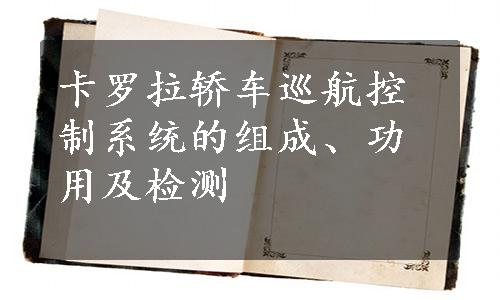 卡罗拉轿车巡航控
制系统的组成、功
用及检测